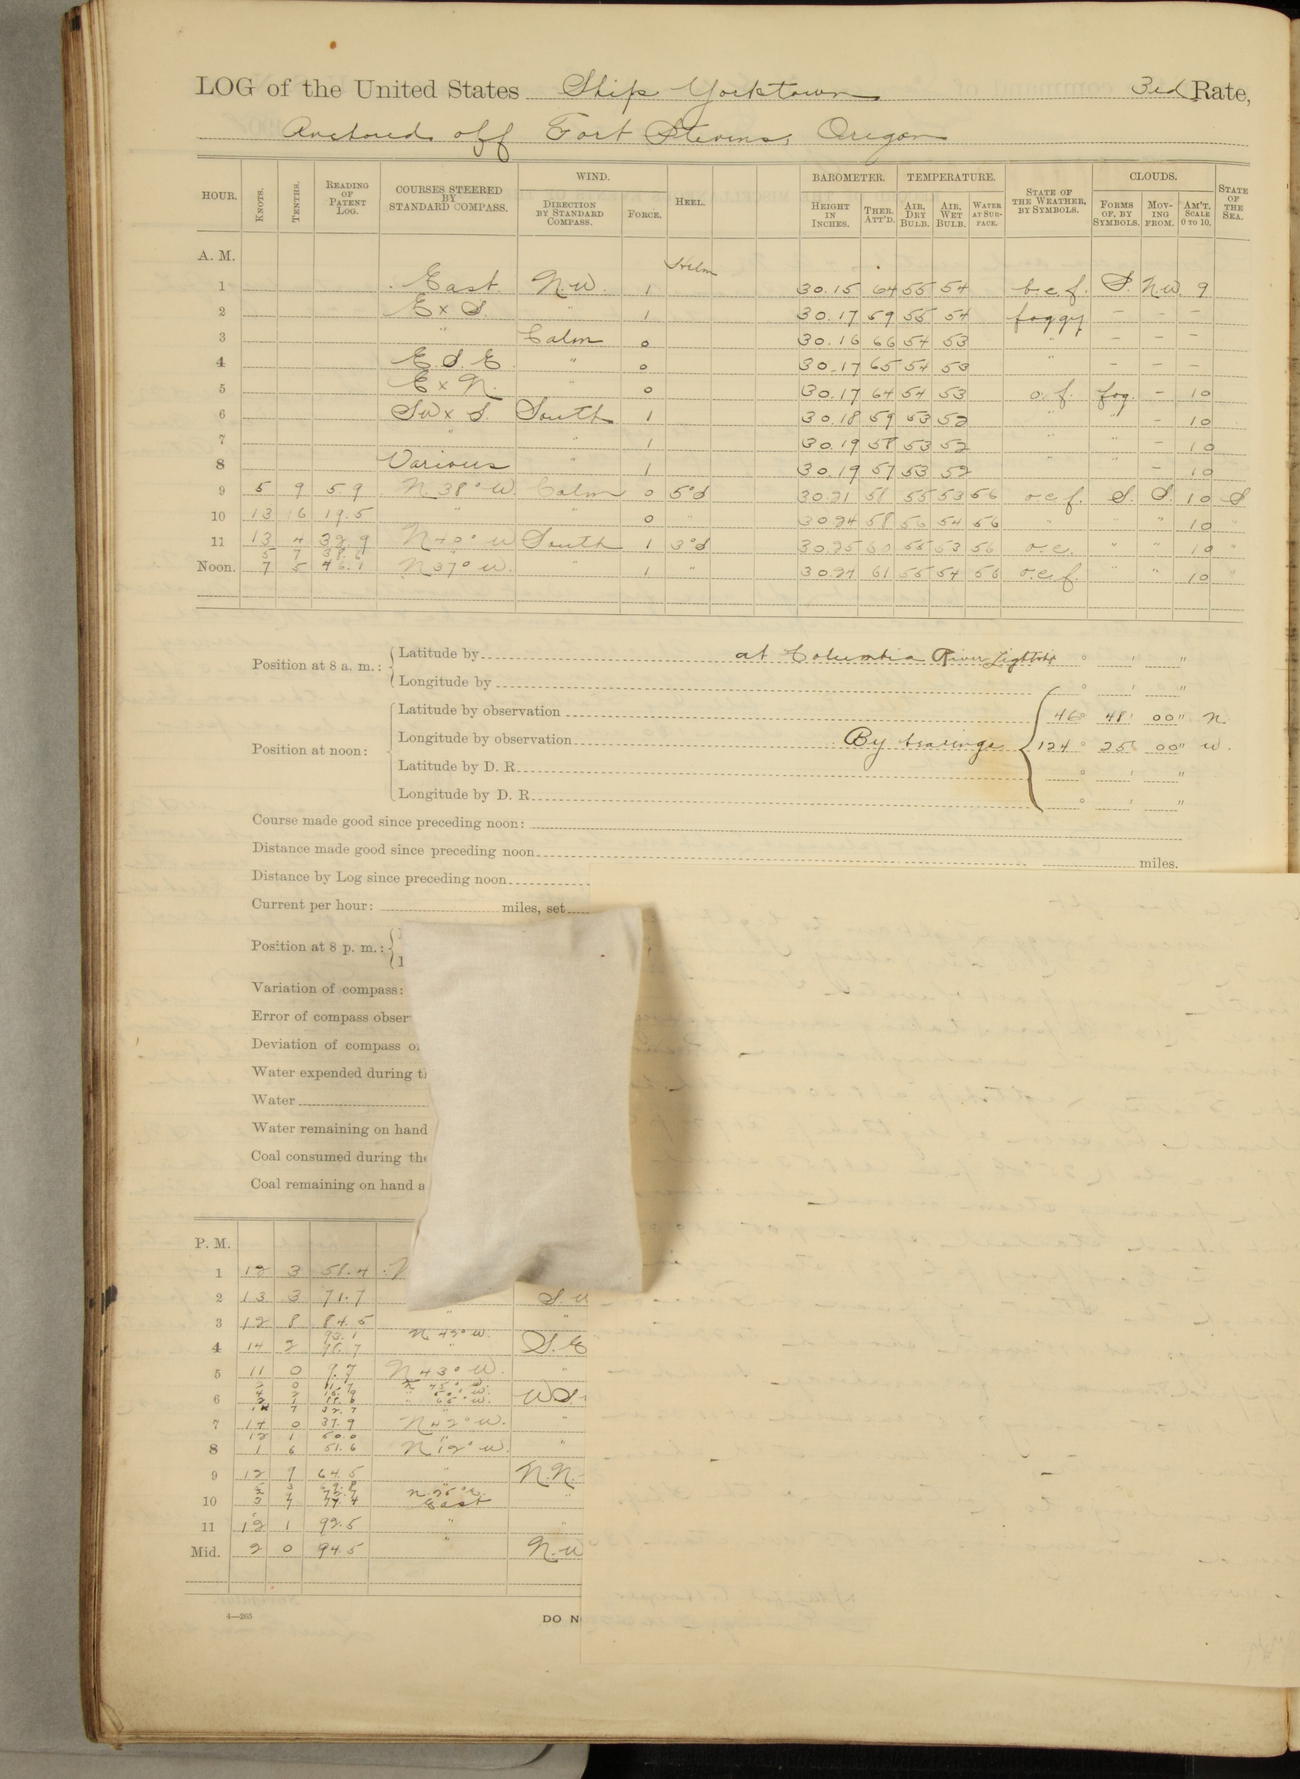 LOG of the United States Ship Yorktown 3rd Rate,
Anchored off Fort Stevens, Oregon
HOUR. KNOTS. TENTHS. READING OF PATENT LOG. COURSES STEERED BY STANDARD COMPASS. WIND. DIRECTION BY STANDARD COMPASS. FORCE. HEEL. BAROMETER. HEIGHT IN INCHES. THER. ATT'D. TEMPERATURE. AIR, DRY BULB. AIR, WET BULB. WATER AT SURFACE. STATE OF THE WEATHER, BY SYMBOLS. CLOUDS. FORMS OF, BY SYMBOLS. MOVING FROM. AM'T. SCALE 0 TO 10. STATE OF THE SEA.
A. M.
1 East N.W. 1 30.15 64 55 54 b.c.f. S. N.W. 9
2 E x S. " 1 30.17 59 55 54 foggy – – –
3 " Calm 0 30.16 66 54 53 " – – –
4 E.S.E. " 0 30.17 65 54 53 " – – –
5 E x N. " 0 30.17 64 54 53 o.f. fog. – 10
6 SW x S. South 1 30.18 59 53 52 " " – 10
7 " " 1 30.19 58 53 52 " " – 10
8 Various " 1 30.19 57 53 52 " " – 10
9 5 9 5.9 N 38° W Calm 0 5°S 30.21 58 55 53 56 o.c.f. S. S. 10 S
10 13 6 19.5 " " 0 " 30.24 58 56 54 56 " " " 10 "
11 13 4 32.9 N 40° W South 1 3°S 30.25 60 55 53 56 o.c. " " 10 "
5 7 38.6
Noon. 7 5 46.1 N 37° W. " 1 " 30.24 61 55 54 56 o.c.f. " " 10 "
Position at 8 a. m.: Latitude by at Columbia River Lightship ° ' "
Longitude by ° ' "
Position at noon: Latitude by observation 46° 48' 00" N.
Longitude by observation By bearings 124° 25' 00" W.
Latitude by D. R. ° ' "
Longitude by D. R. ° ' "
Course made good since preceding noon:
Distance made good since preceding noon miles.
Distance by Log since preceding noon
Current per hour: miles, set
Position at 8 p. m.:
Variation of compass:
Error of compass obser
Deviation of compass o
Water expended during t
Water
Water remaining on hand
Coal consumed during the
Coal remaining on hand a
P. M.
1 12 3 58.4 N
2 13 3 71.7 S.W
3 12 8 84.5 " "
93.1 N 42° W.
4 14 2 98.7 " S.E
5 11 0 9.7 N 43° W. "
6 W S
32.7
7 14 0 37.9 N 42° W. "
12 1 50.0
8 1 6 51.6 N 12° W. "
9 12 9 64.5 " N.N.
10 77.4 East "
11 12 1 92.5 " "
Mid. 2 0 94.5 " N.W
4—265
DO N